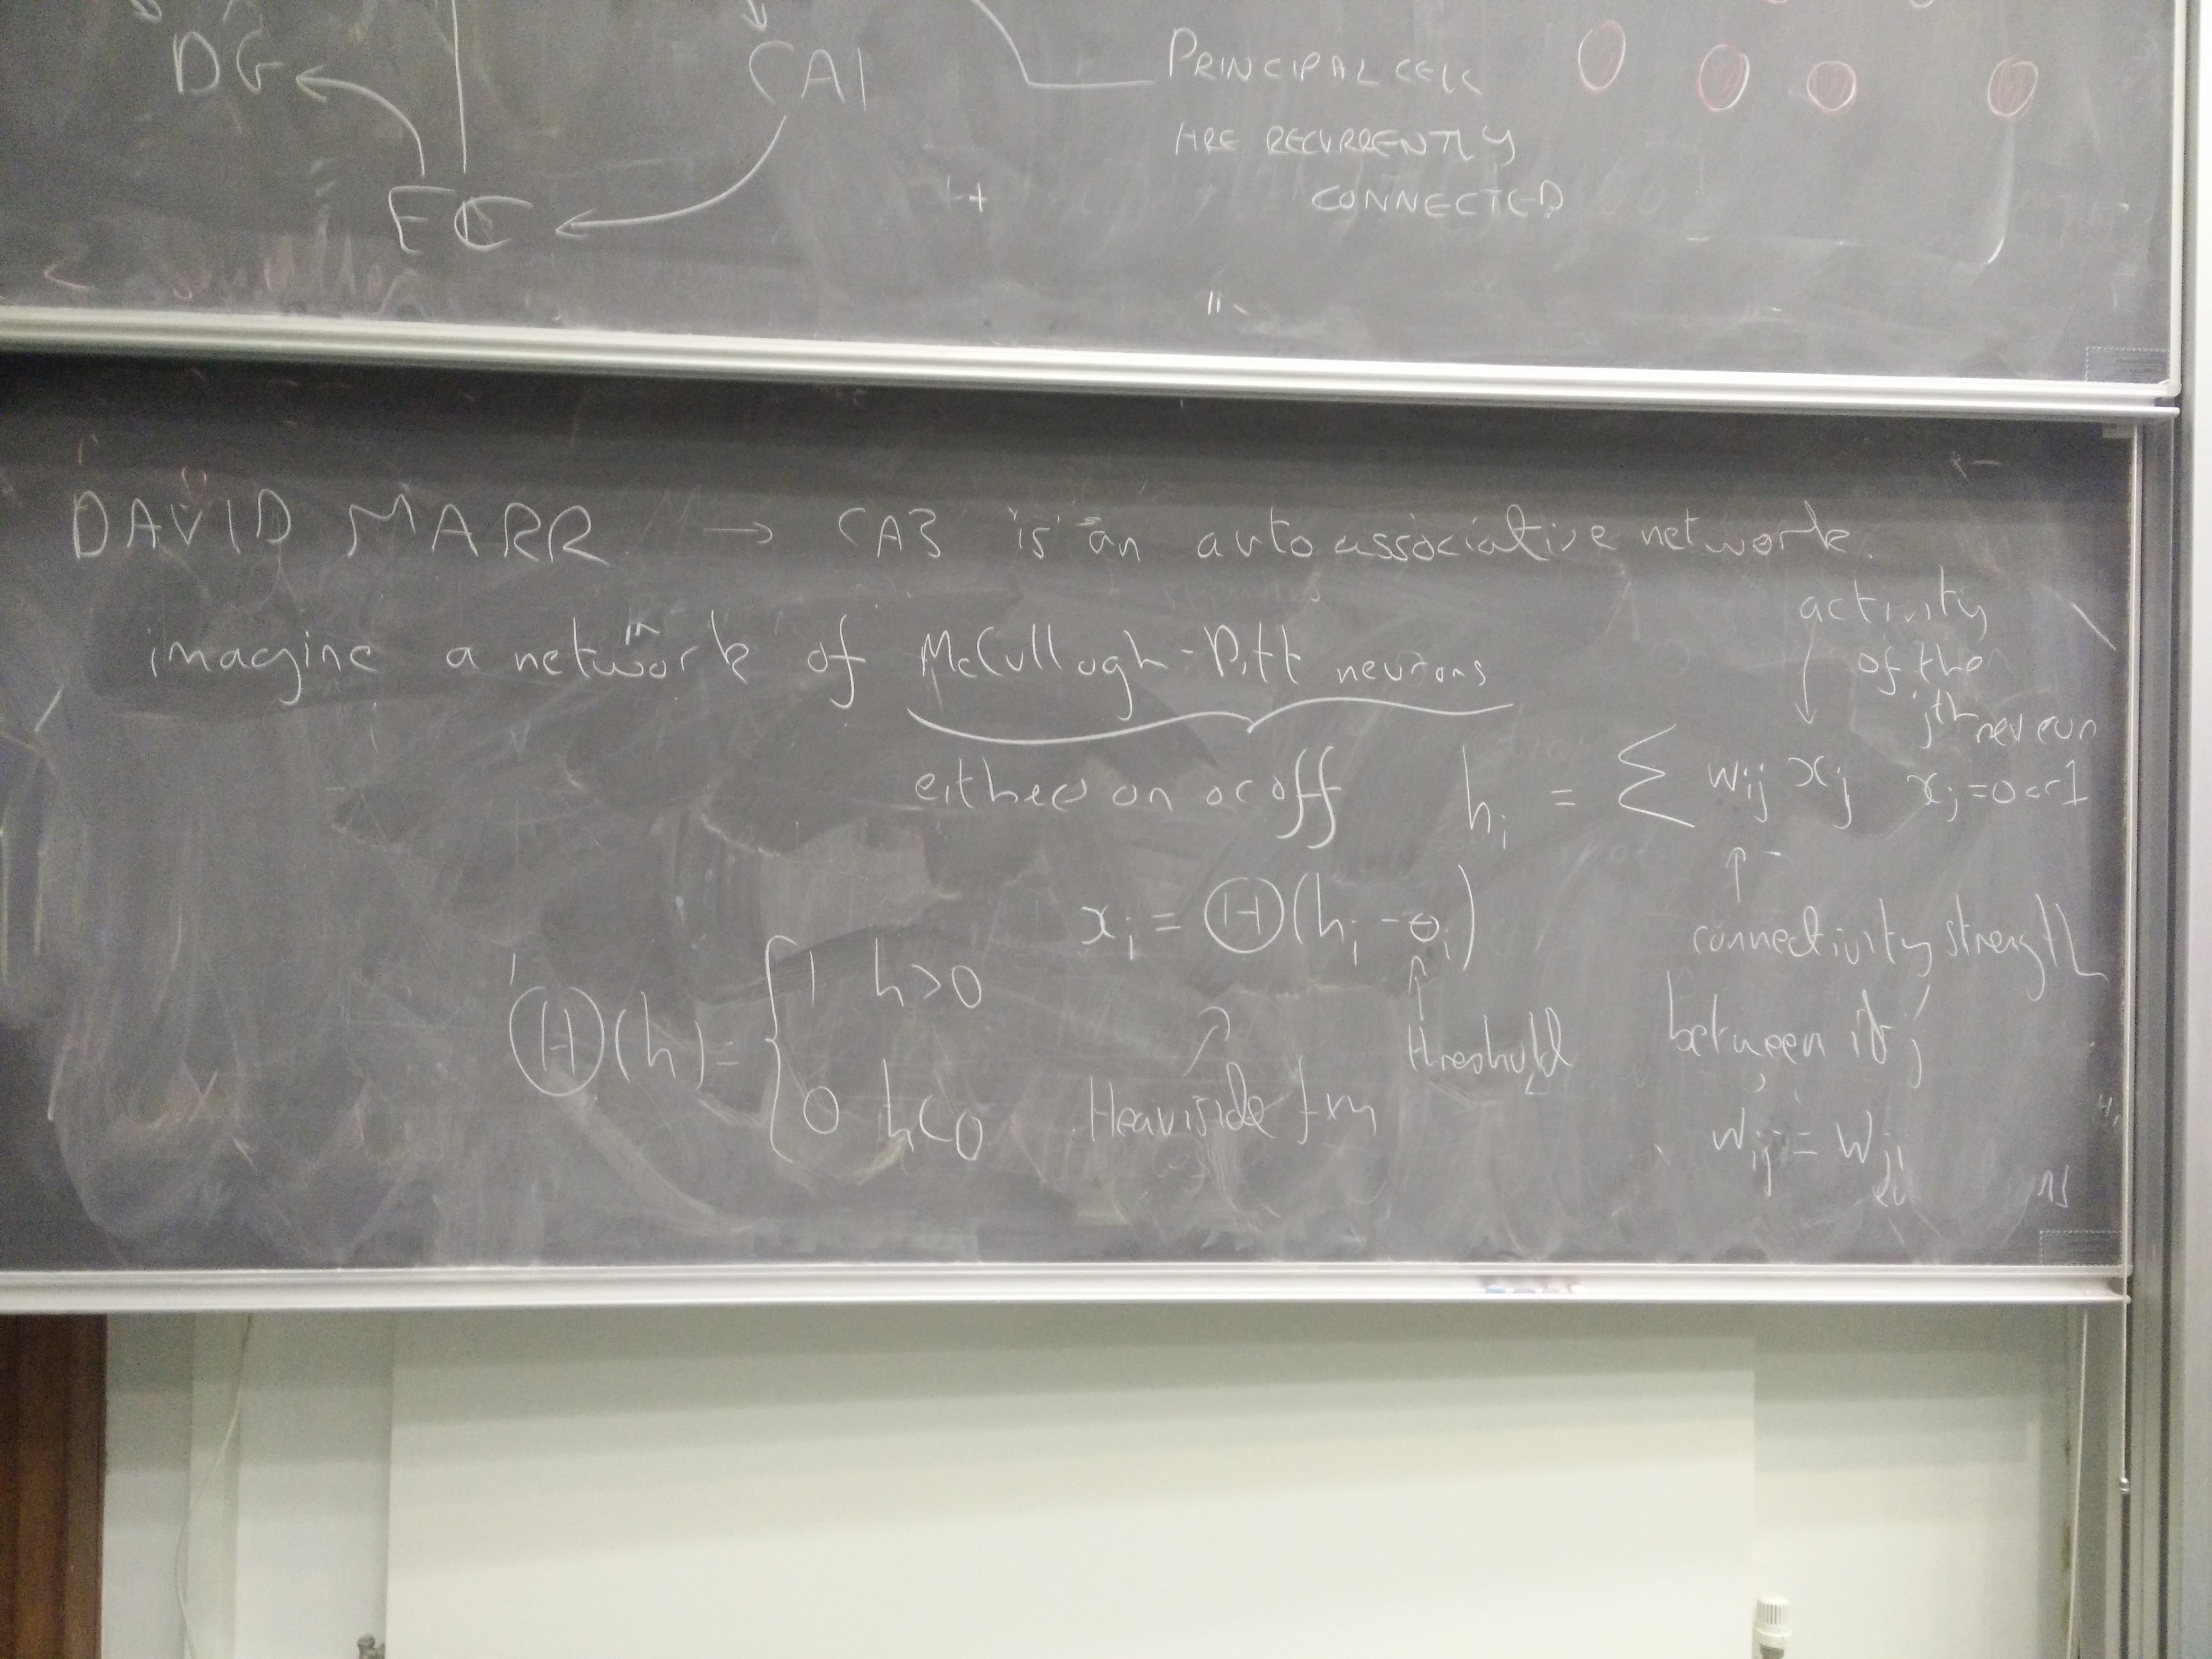 DG
CA1
PRINCIPAL CELLS
ARE RECURRENTLY
CONNECTED
EC
DAVID MARR → CA3 is an autoassociative network.
imagine a network of McCullogh-Pitt neurons
activity
of the
jth neuron
either on or off
h_i = Σ w_ij x_j
x_j = 0 or 1
x_i = Θ(h_i - θ_i)
connectivity strength
between i & j
w_ij = w_ji
threshold
Heaviside fxn
Θ(h) = { 1 h>0
0 h<0